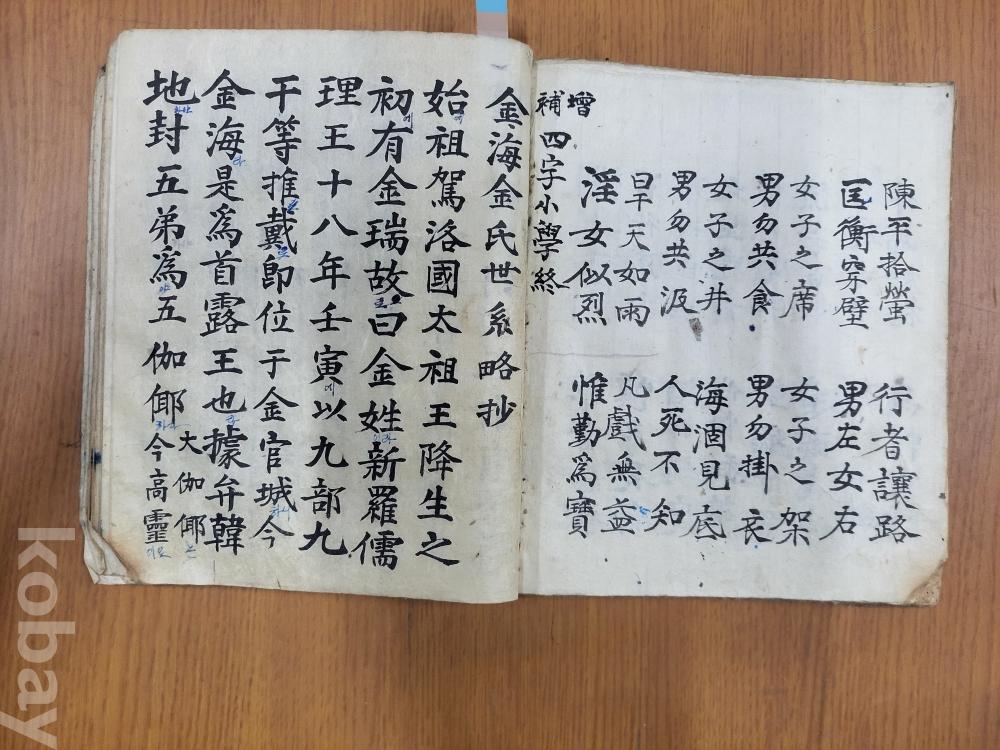 陳平拾螢 行者讓路
匡衡穿壁 男左女右
女子之席 女子之架
男勿共食 男勿掛衣
女子之井 海涸見底
男勿共汲 人死不知
旱天如雨 凡戱無益
淫女似烈 惟勤爲寶
增補四字小學終
金海金氏世系略抄
始祖駕洛國太祖王降生之
初有金瑞故曰金姓新羅儒
理王十八年壬寅以九部九
干等推戴卽位于金官城今
金海是爲首露王也據弁韓
地封五弟爲五伽倻大伽倻今高靈
kobay